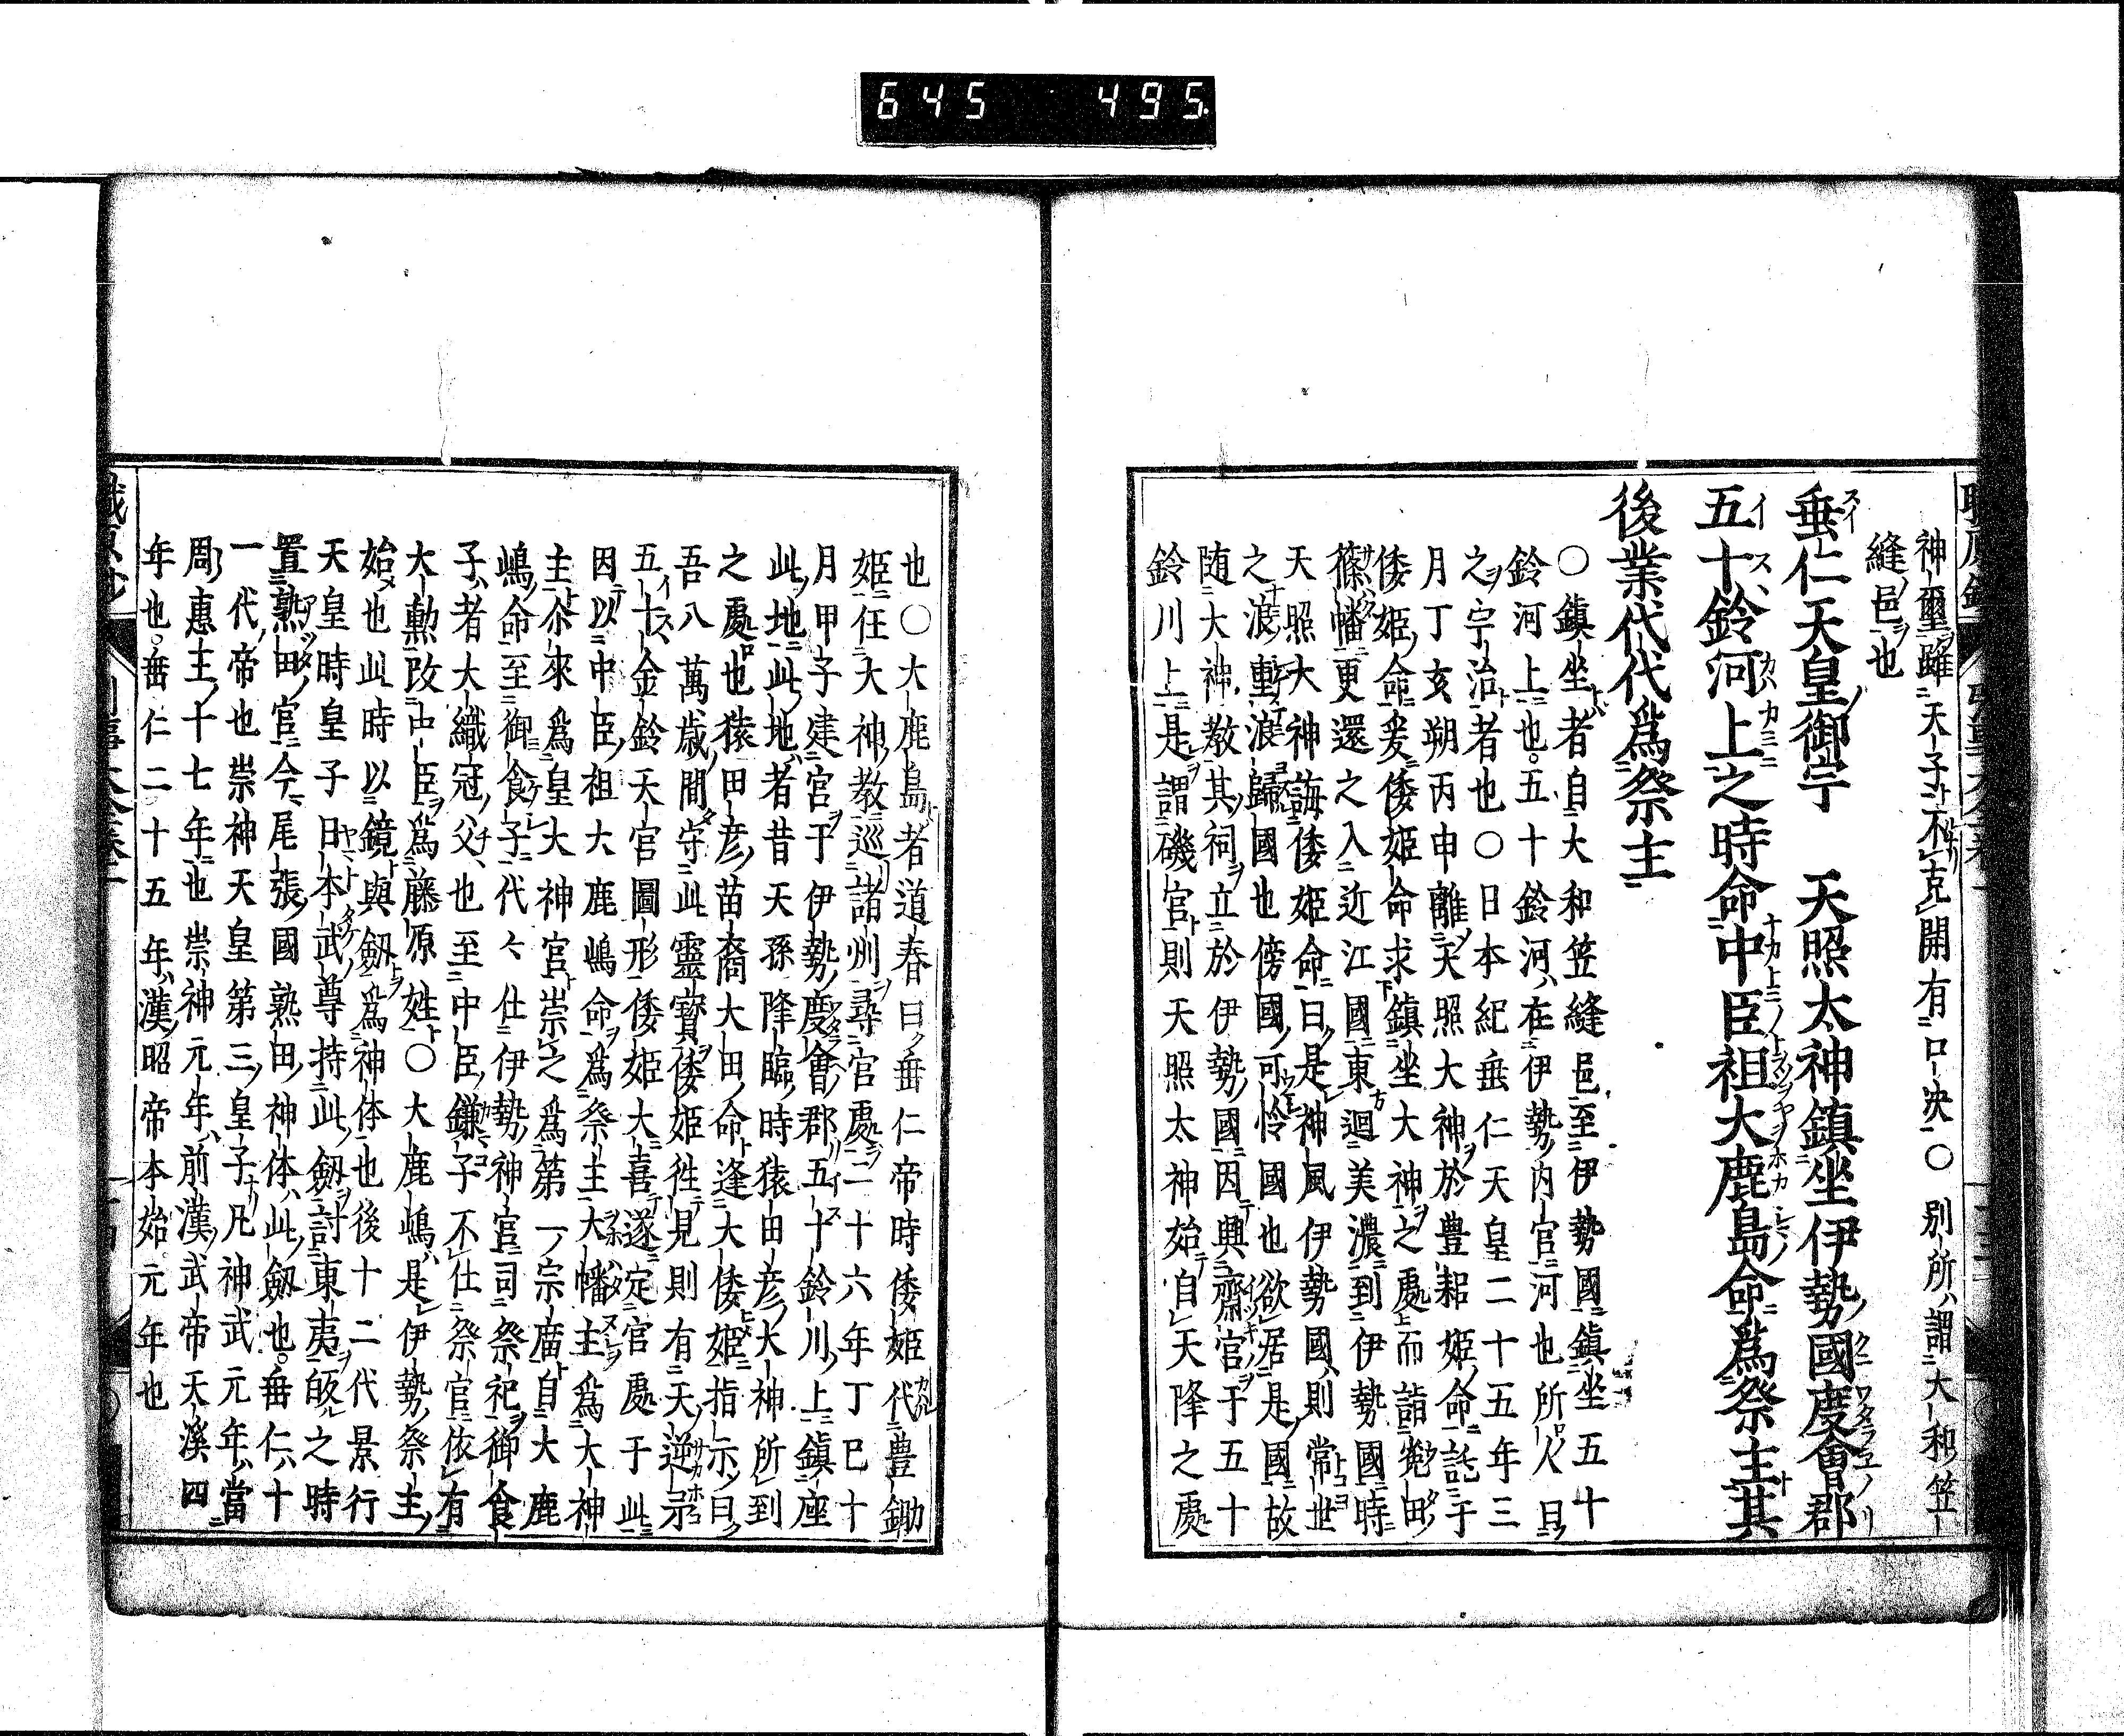 645 495.
神璽雖天子不克開有口决○別所謂大和笠
縫邑也
垂仁天皇御宇 天照太神鎮坐伊勢國度會郡
五十鈴河上之時命中臣祖大鹿島命爲祭主其
後業代代爲祭主
○鎮坐者自大和笠縫邑至伊勢國鎮坐五十
鈴河上也五十鈴河在伊勢内宮河也所人曰
之宇治者也○日本紀垂仁天皇二十五年三
月丁亥朔丙申離天照大神於豊耜姫命託于
倭姫命爰倭姫命求鎮坐大神之處而詣菟田
篠幡更還之入近江國東迴美濃到伊勢國時
天照大神誨倭姫命曰是神風伊勢國則常世
之浪重浪歸國也傍國可怜國也欲居是國故
随大神教其祠立於伊勢國因興齋宮于五十
鈴川上是謂磯宮則天照太神始自天降之處
也○大鹿島者道春曰垂仁帝時倭姫代豊鋤
姫任大神教巡諸州尋宮處二十六年丁巳十
月甲子建宮于伊勢度會郡五十鈴川上鎮座
此地此地者昔天孫降臨時猿田彦大神所到
之處也猿田彦苗裔大田命逢大倭姫指示曰
吾八萬歳間守此靈寳倭姫徃見則有天逆示
五十金鈴天宮圖形倭姫大喜遂定宮處于此
因以中臣祖大鹿嶋命爲祭主大幡主爲大神
主尒來爲皇大神宮崇之爲第一宗廟自大鹿
嶋命至御食子代々仕伊勢神宮司祭祀御食
子者大織冠父也至中臣鎌子不仕祭官依有
大勲改中臣爲藤原姓○大鹿嶋是伊勢祭主
始也此時以鏡與劔爲神体也後十二代景行
天皇時皇子日本武尊持此劔討東夷皈之時
置熱田宮今尾張國熱田神体此劔也垂仁十
一代帝也崇神天皇第三皇子凡神武元年當
周惠王十七年也崇神元年前漢武帝天漢四
年也垂仁二十五年漢昭帝本始元年也